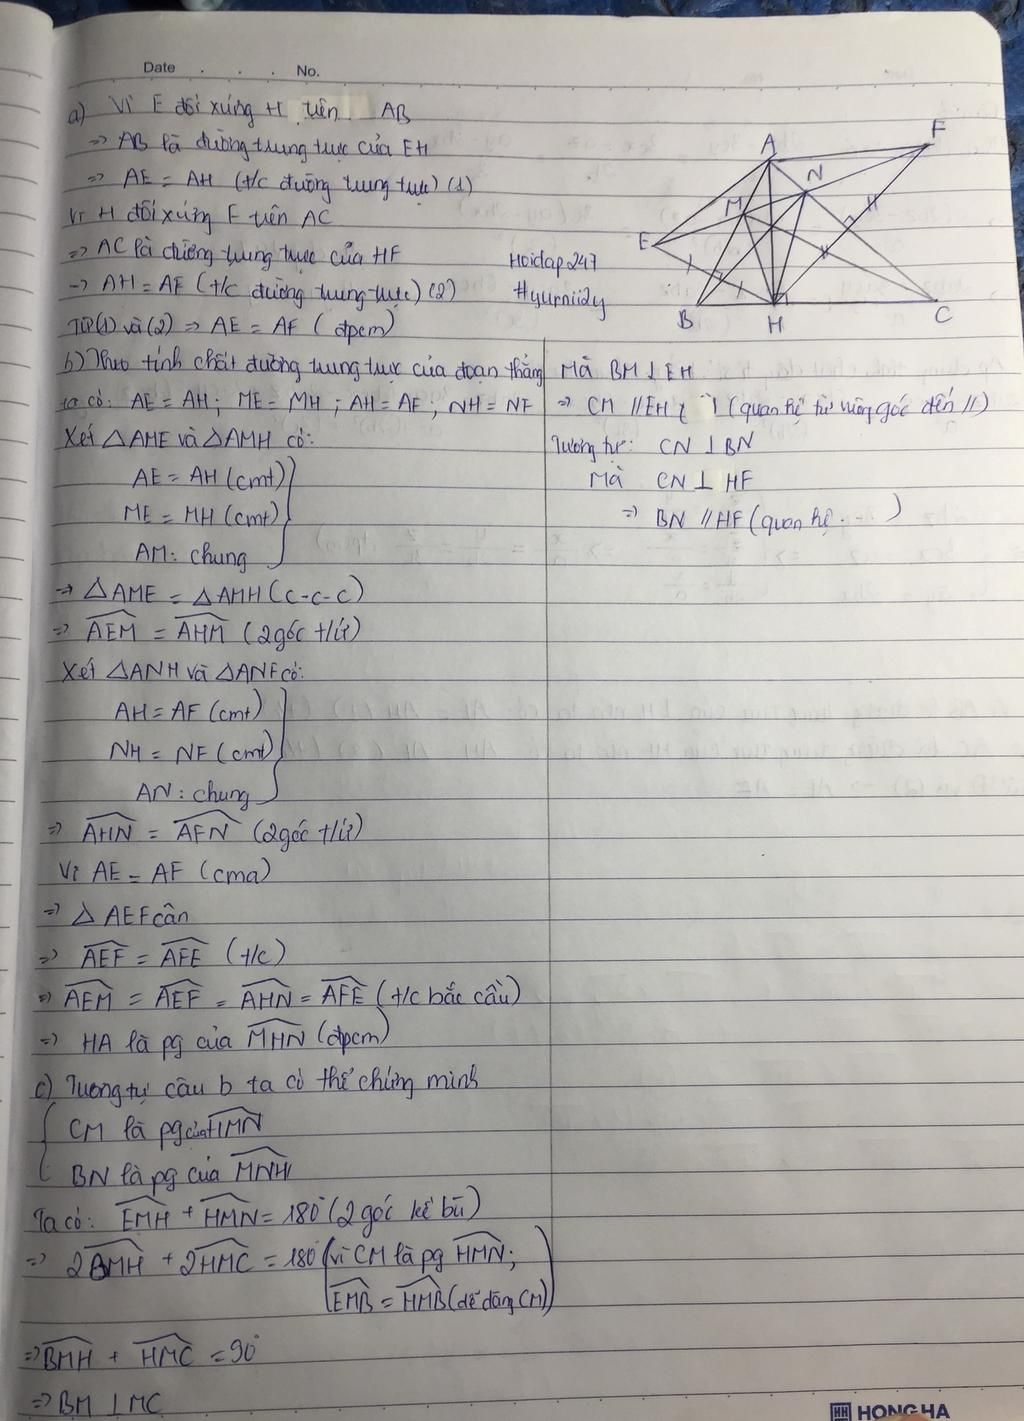 Date . . . No.
a) Vì E đối xứng H trên AB
=> AB là đường trung trực của EH
=> AE = AH (t/c đường trung trực) (1)
Vì H đối xứng F trên AC
=> AC là đường trung trực của HF
=> AH = AF (t/c đường trung trực) (2)
Từ (1) và (2) => AE = AF (đpcm)
Hoidap247
#yurniizy
A
F
N
M
E
B
H
C
b) Theo tính chất đường trung trực của đoạn thẳng
ta có: AE = AH ; ME = MH ; AH = AF ; NH = NF
Xét △AME và △AMH có:
AE = AH (cmt)
ME = MH (cmt)
AM: chung
=> △AME = △AMH (c-c-c)
=> AEM = AHM (2 góc t/ứ)
Xét △ANH và △ANF có:
AH = AF (cmt)
NH = NF (cmt)
AN: chung
=> AHN = AFN (2 góc t/ứ)
Vì AE = AF (cma)
=> △ AEF cân
=> AEF = AFE (t/c)
=> AEM = AEF = AHN = AFE (t/c bắc cầu)
=> HA là pg của MHN (đpcm)
c) Tương tự câu b ta có thể chứng minh
CM là pg của HMN
BN là pg của MNH
Ta có: EMH + HMN = 180° (2 góc kề bù)
=> 2BMH + 2HMC = 180° (vì CM là pg HMN;
EMB = HMB (dễ dàng CM))
=> BMH + HMC = 90°
=> BM ⊥ MC
Mà BM ⊥ EH
=> CM // EH (quan hệ từ vuông góc đến //)
Tương tự: CN ⊥ BN
Mà CN ⊥ HF
=> BN // HF (quan hệ . . .)
HH HONG HA